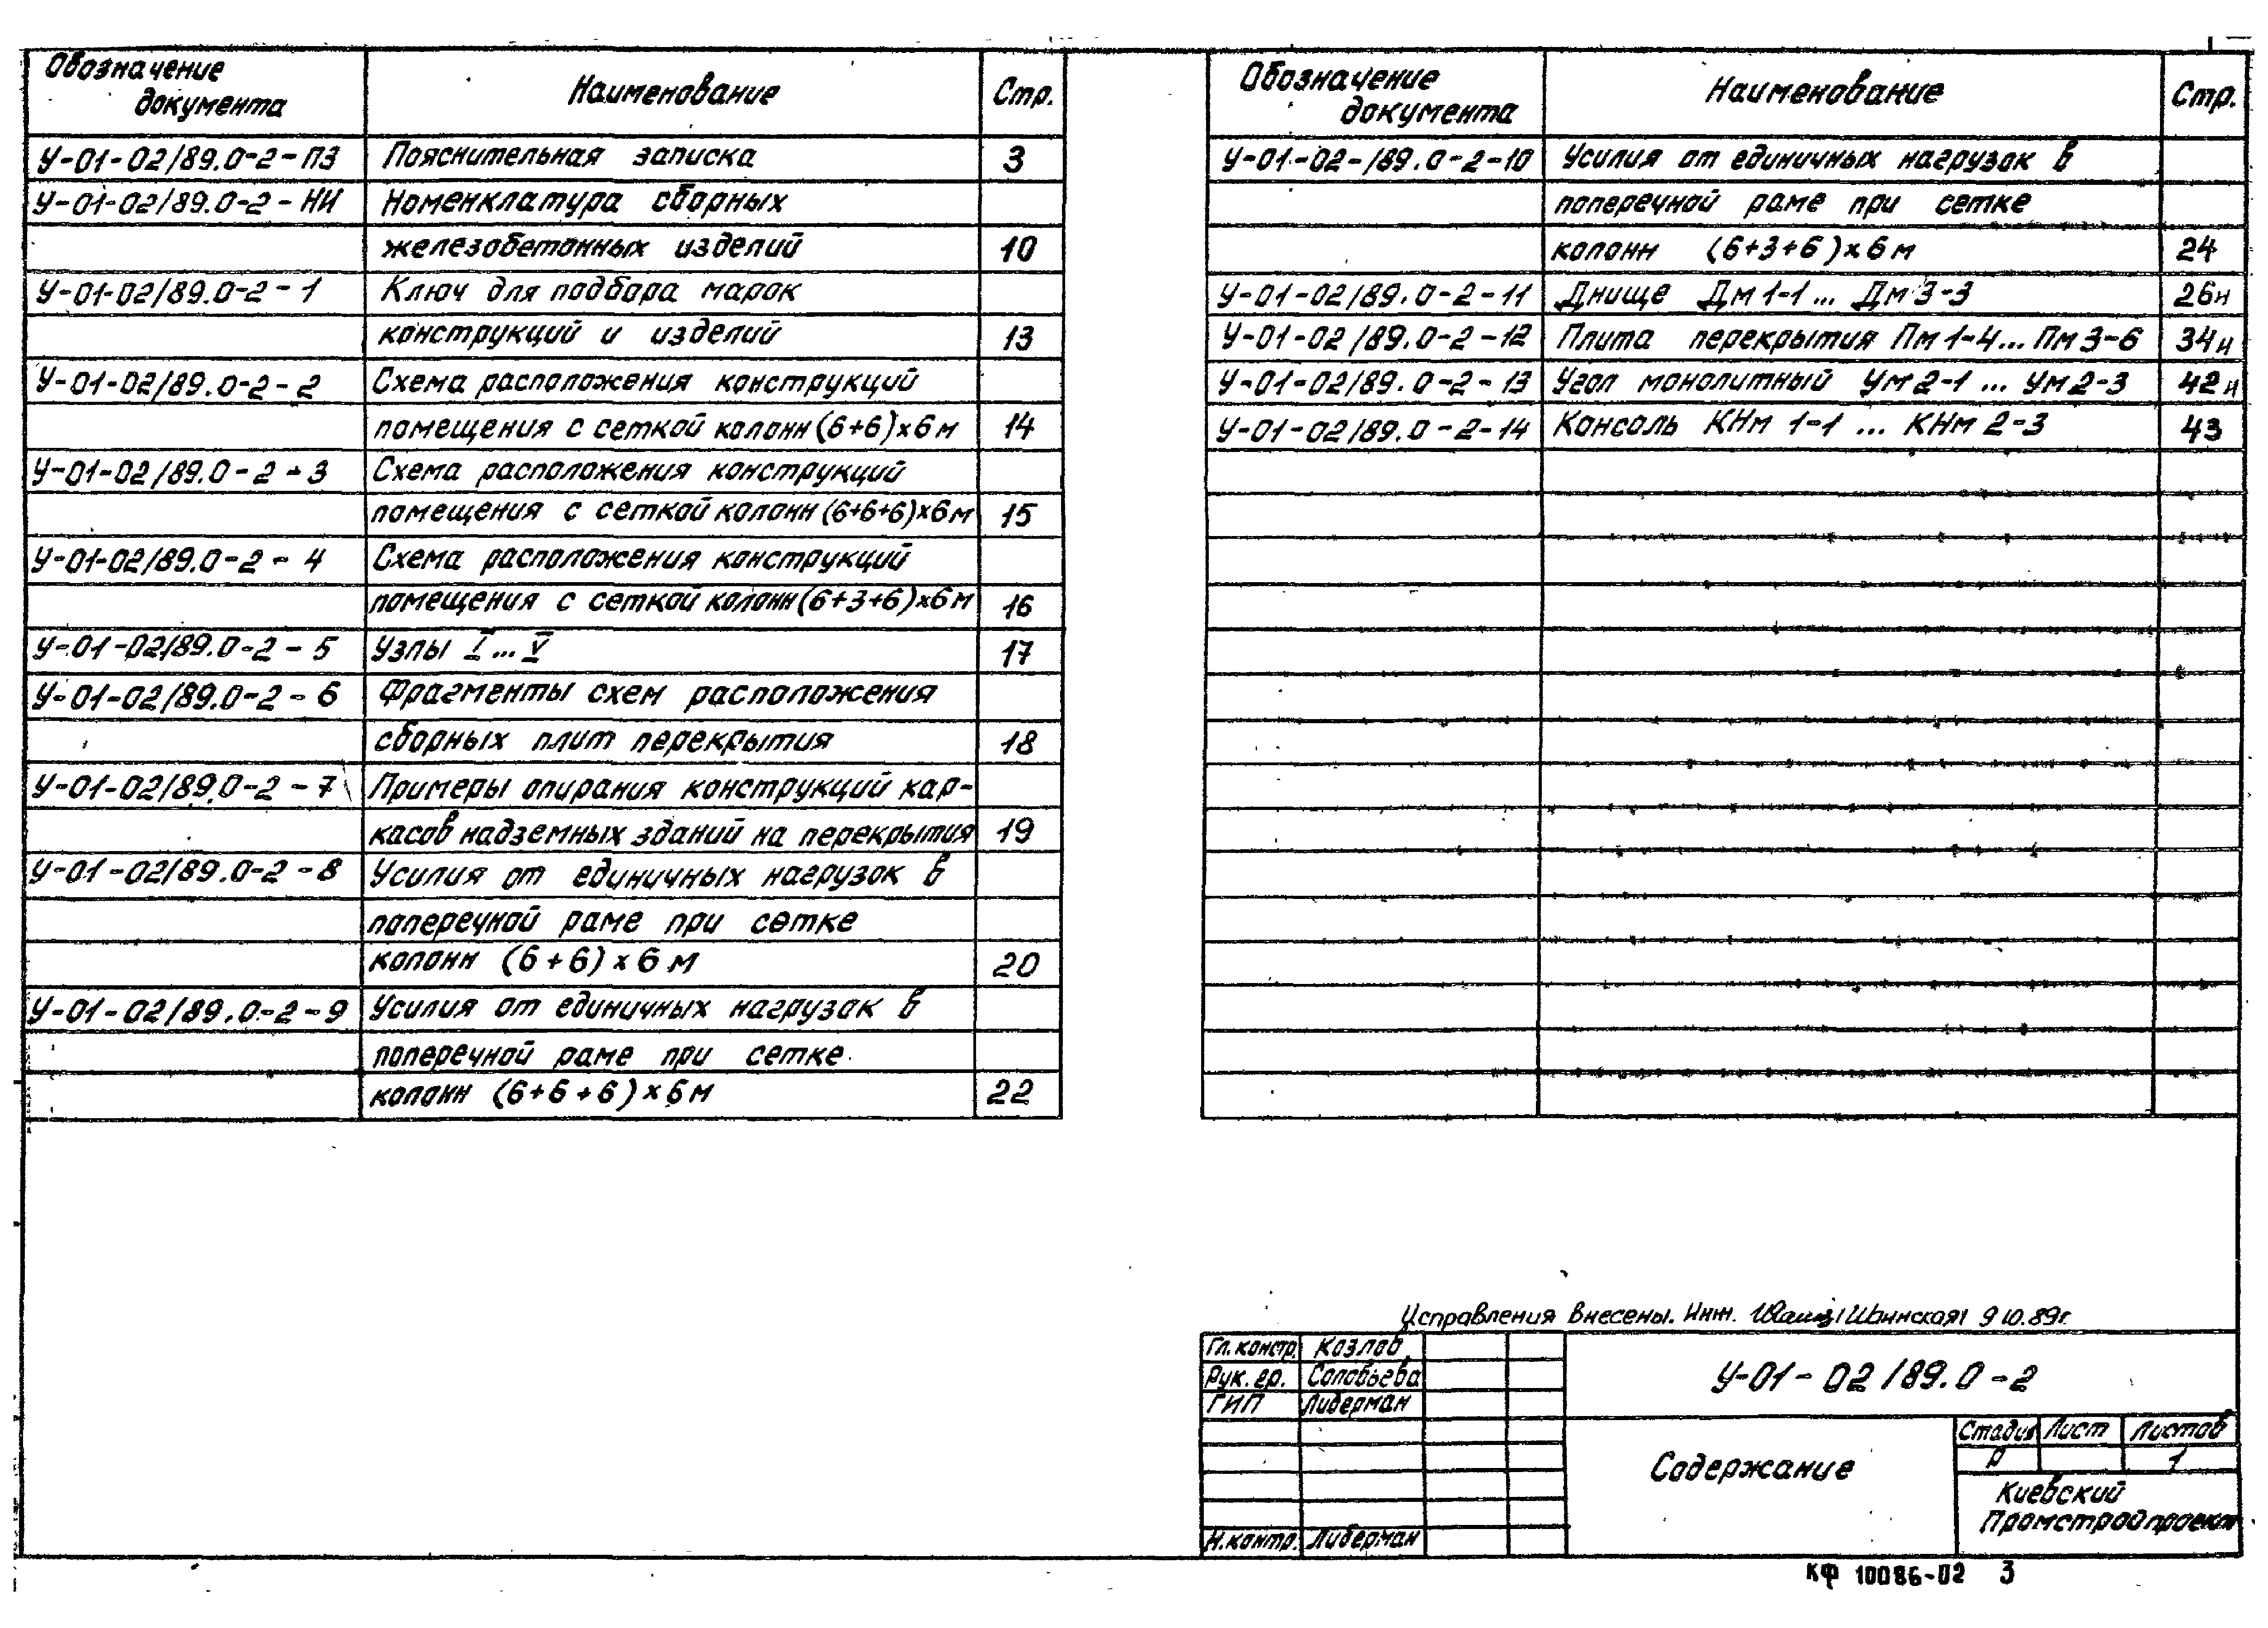 Обозначение документа Наименование Стр.
У-01-02/89.0-2-ПЗ Пояснительная записка 3
У-01-02/89.0-2-НИ Номенклатура сборных
железобетонных изделий 10
У-01-02/89.0-2-1 Ключ для подбора марок
конструкций и изделий 13
У-01-02/89.0-2-2 Схема расположения конструкций
помещения с сеткой колонн (6+6)х6м 14
У-01-02/89.0-2-3 Схема расположения конструкций
помещения с сеткой колонн (6+6+6)х6м 15
У-01-02/89.0-2-4 Схема расположения конструкций
помещения с сеткой колонн (6+3+6)х6м 16
У-01-02/89.0-2-5 Узлы I...V 17
У-01-02/89.0-2-6 Фрагменты схем расположения
сборных плит перекрытия 18
У-01-02/89.0-2-7 Примеры опирания конструкций кар-
касов надземных зданий на перекрытия 19
У-01-02/89.0-2-8 Усилия от единичных нагрузок в
поперечной раме при сетке
колонн (6+6)х6м 20
У-01-02/89.0-2-9 Усилия от единичных нагрузок в
поперечной раме при сетке
колонн (6+6+6)х6м 22
Обозначение документа Наименование Стр.
У-01-02-/89.0-2-10 Усилия от единичных нагрузок в
поперечной раме при сетке
колонн (6+3+6)х6м 24
У-01-02/89.0-2-11 Днище Дм1-1... Дм3-3 26и
У-01-02/89.0-2-12 Плита перекрытия Пм1-4...Пм3-6 34и
У-01-02/89.0-2-13 Угол монолитный Ум2-1 ... Ум2-3 42и
У-01-02/89.0-2-14 Консоль КНм 1-1 ... КНм 2-3 43
Исправления внесены. Инж. 9 10.89г.
Гл. констр. Козлов
Рук. гр. Соловьева
ГИП Либерман
Н.контр. Либерман
У-01-02/89.0-2
Содержание
Стадия Лист Листов
Р 1
Киевский
Промстройпроект
КФ 10086-02 3